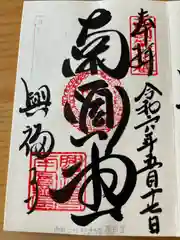 奉拝
令和六年五月十七日
南圓堂
興福寺